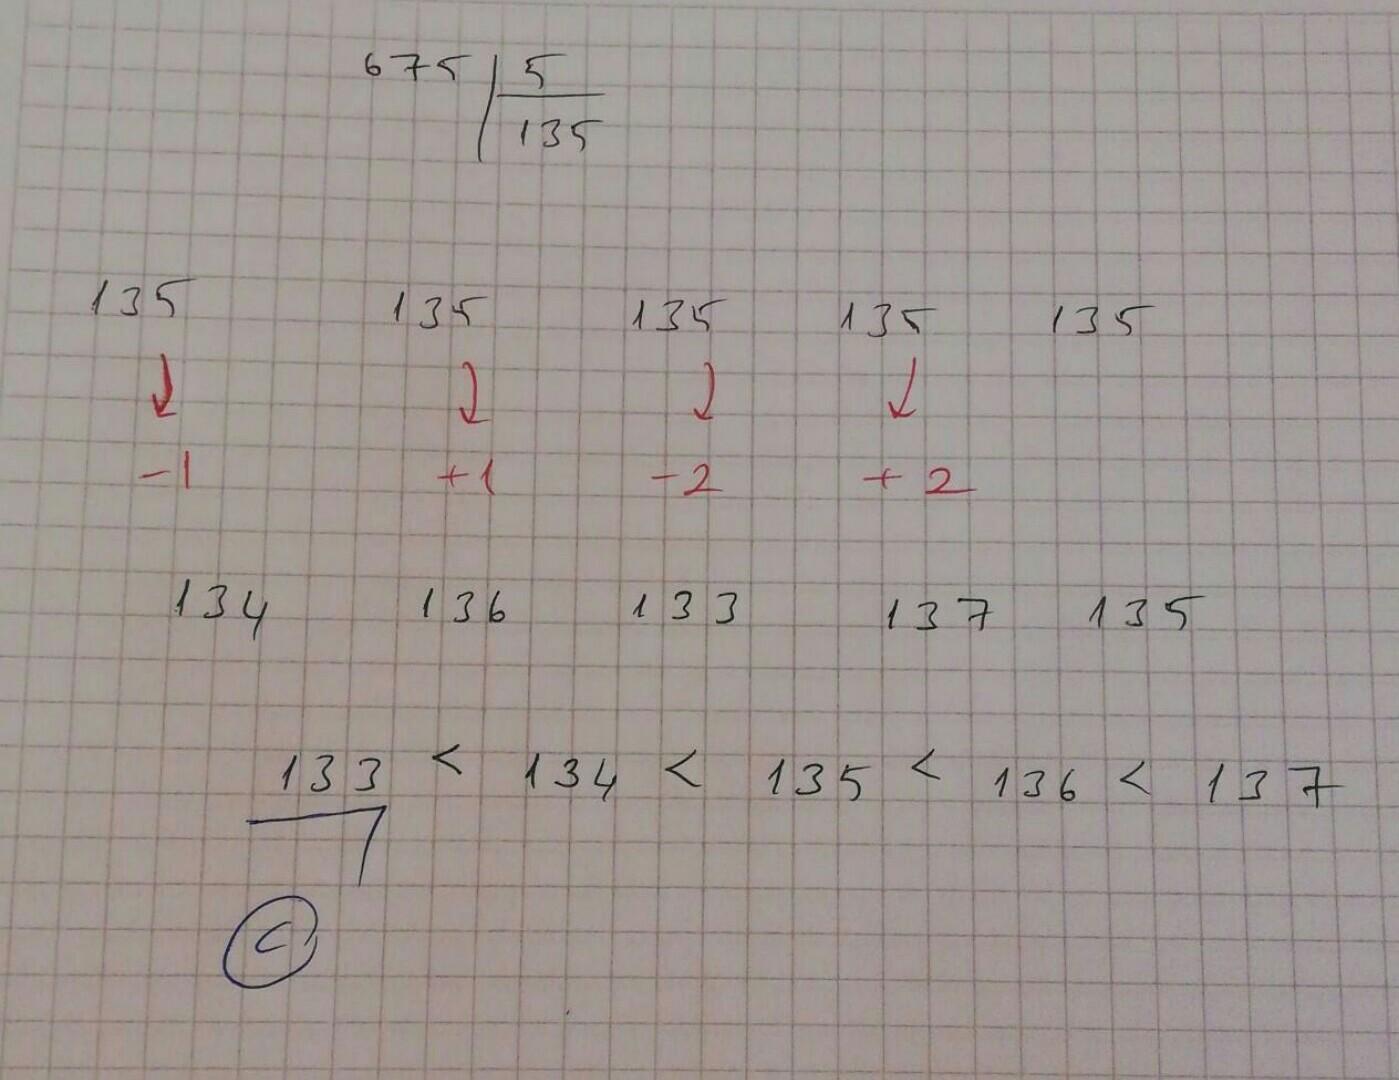 675 5
135
135 135 135 135 135
-1 +1 -2 +2
134 136 133 137 135
133 < 134 < 135 < 136 < 137
C